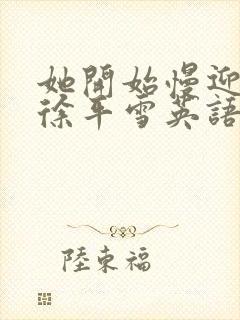 她開始慢迎
徐年雪英語
陸東福